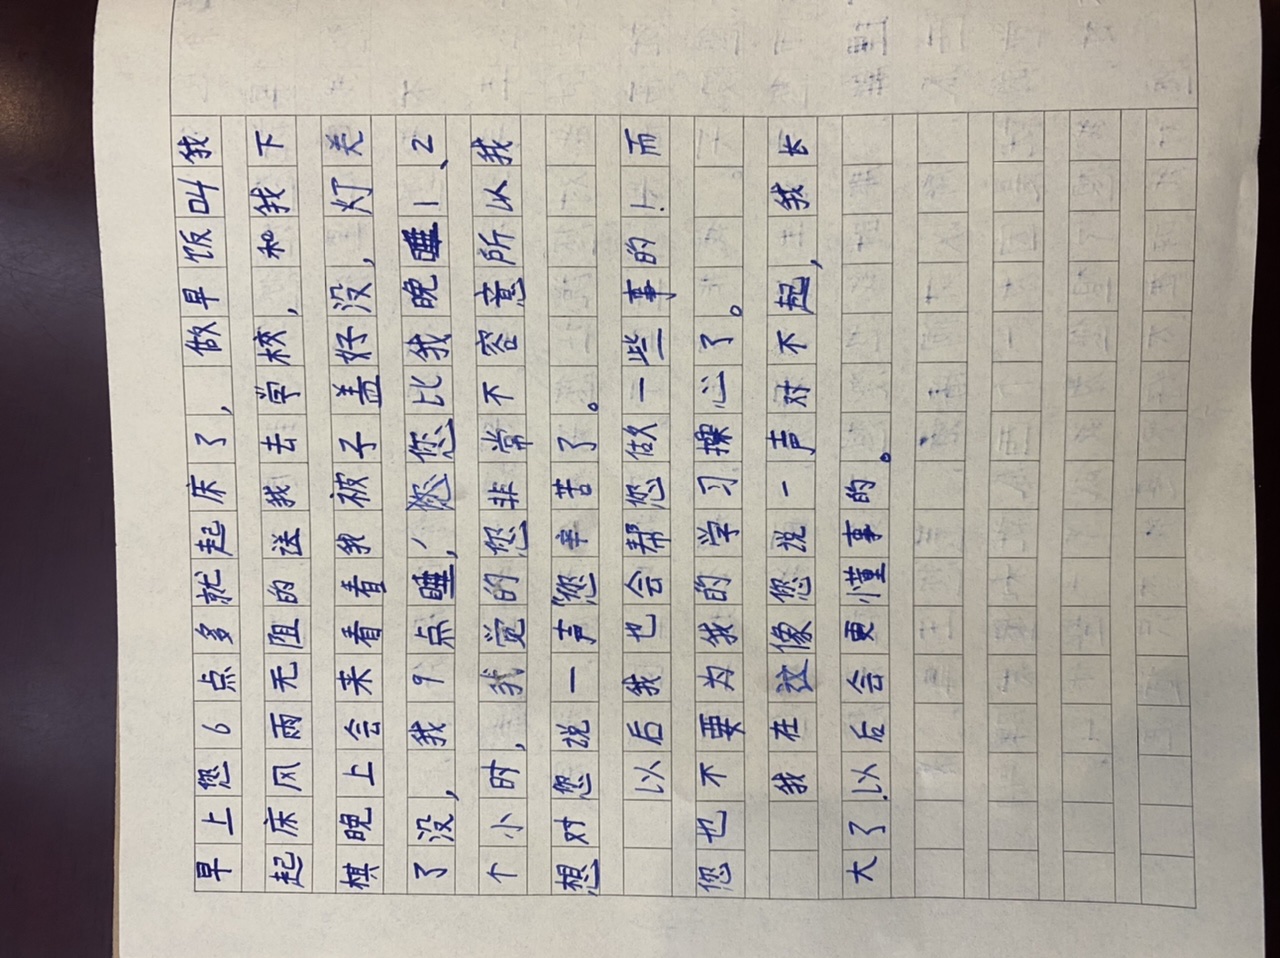 早上您6点多就起床了，做早饭叫我
起床风雨无阻的送我去学校，和我下
棋晚上会来看看我被子盖好没，灯关
了没，我9点睡，您您比我晚睡1、2
个小时，我觉的您非常不容意所以我
想对您说一声“您辛苦了。
以后我也会帮您做一些事的！而
您也不要为我的学习操心了。
我在这像您说一声对不起，我长
大了以后会更懂事的。